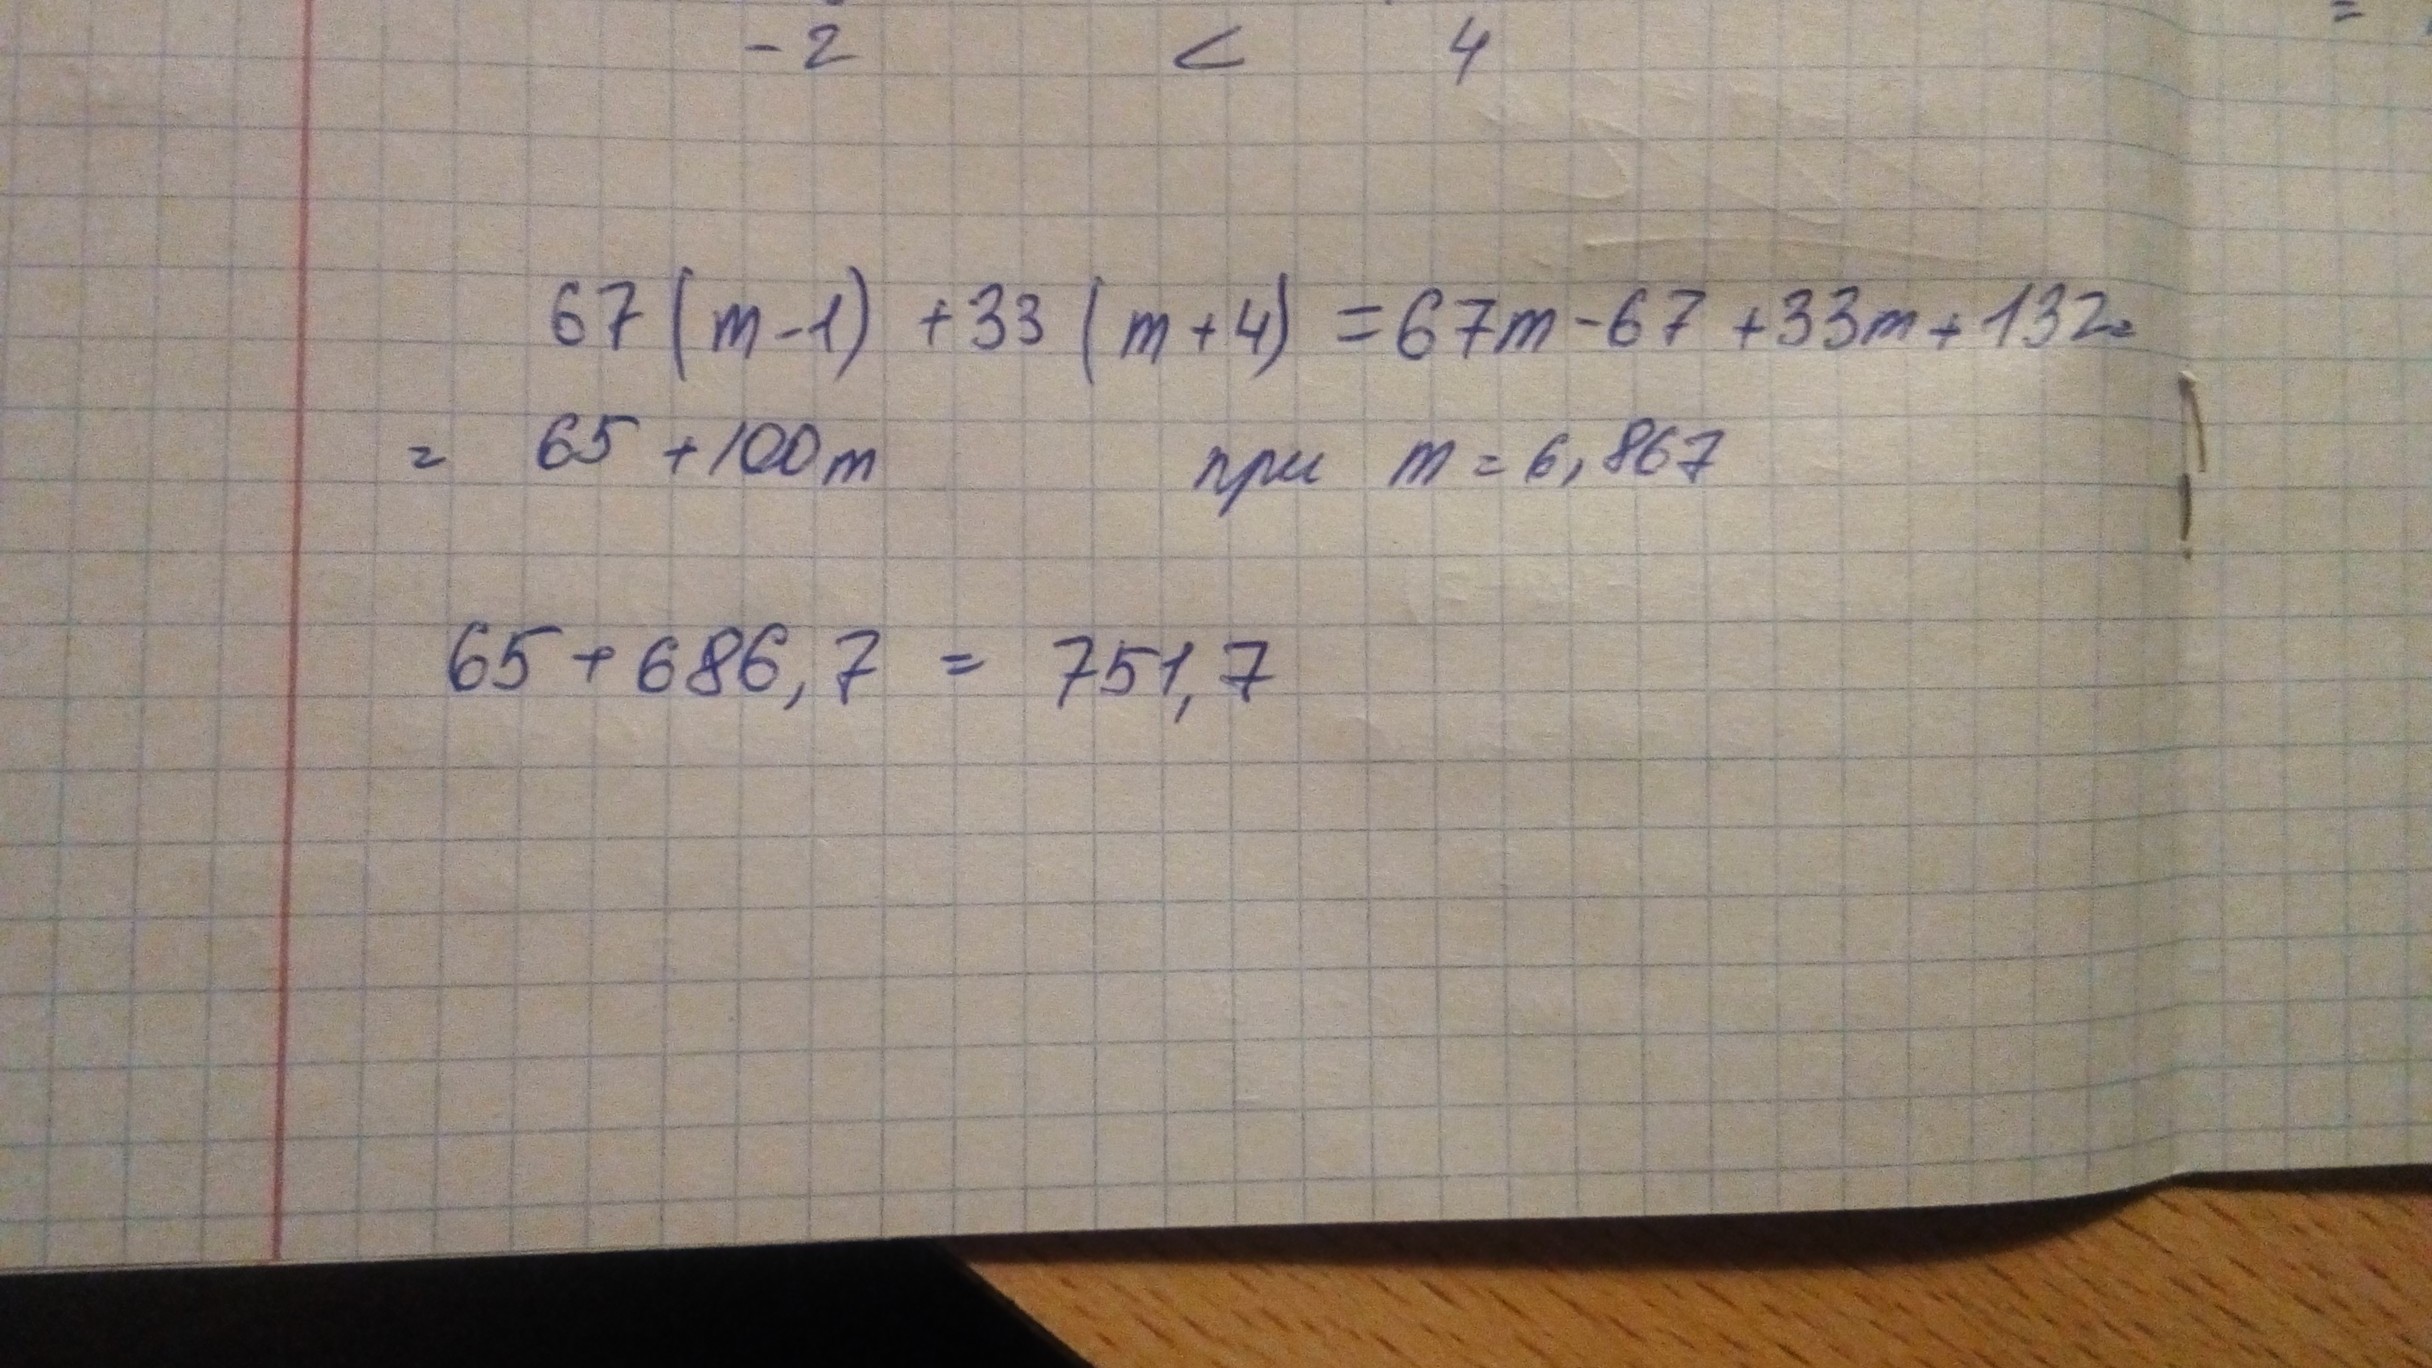 -2 < 4
67(m-1) +33 (m+4) =67m-67 +33m+132=
= 65 +100m при m=6,867
65+686,7 = 751,7